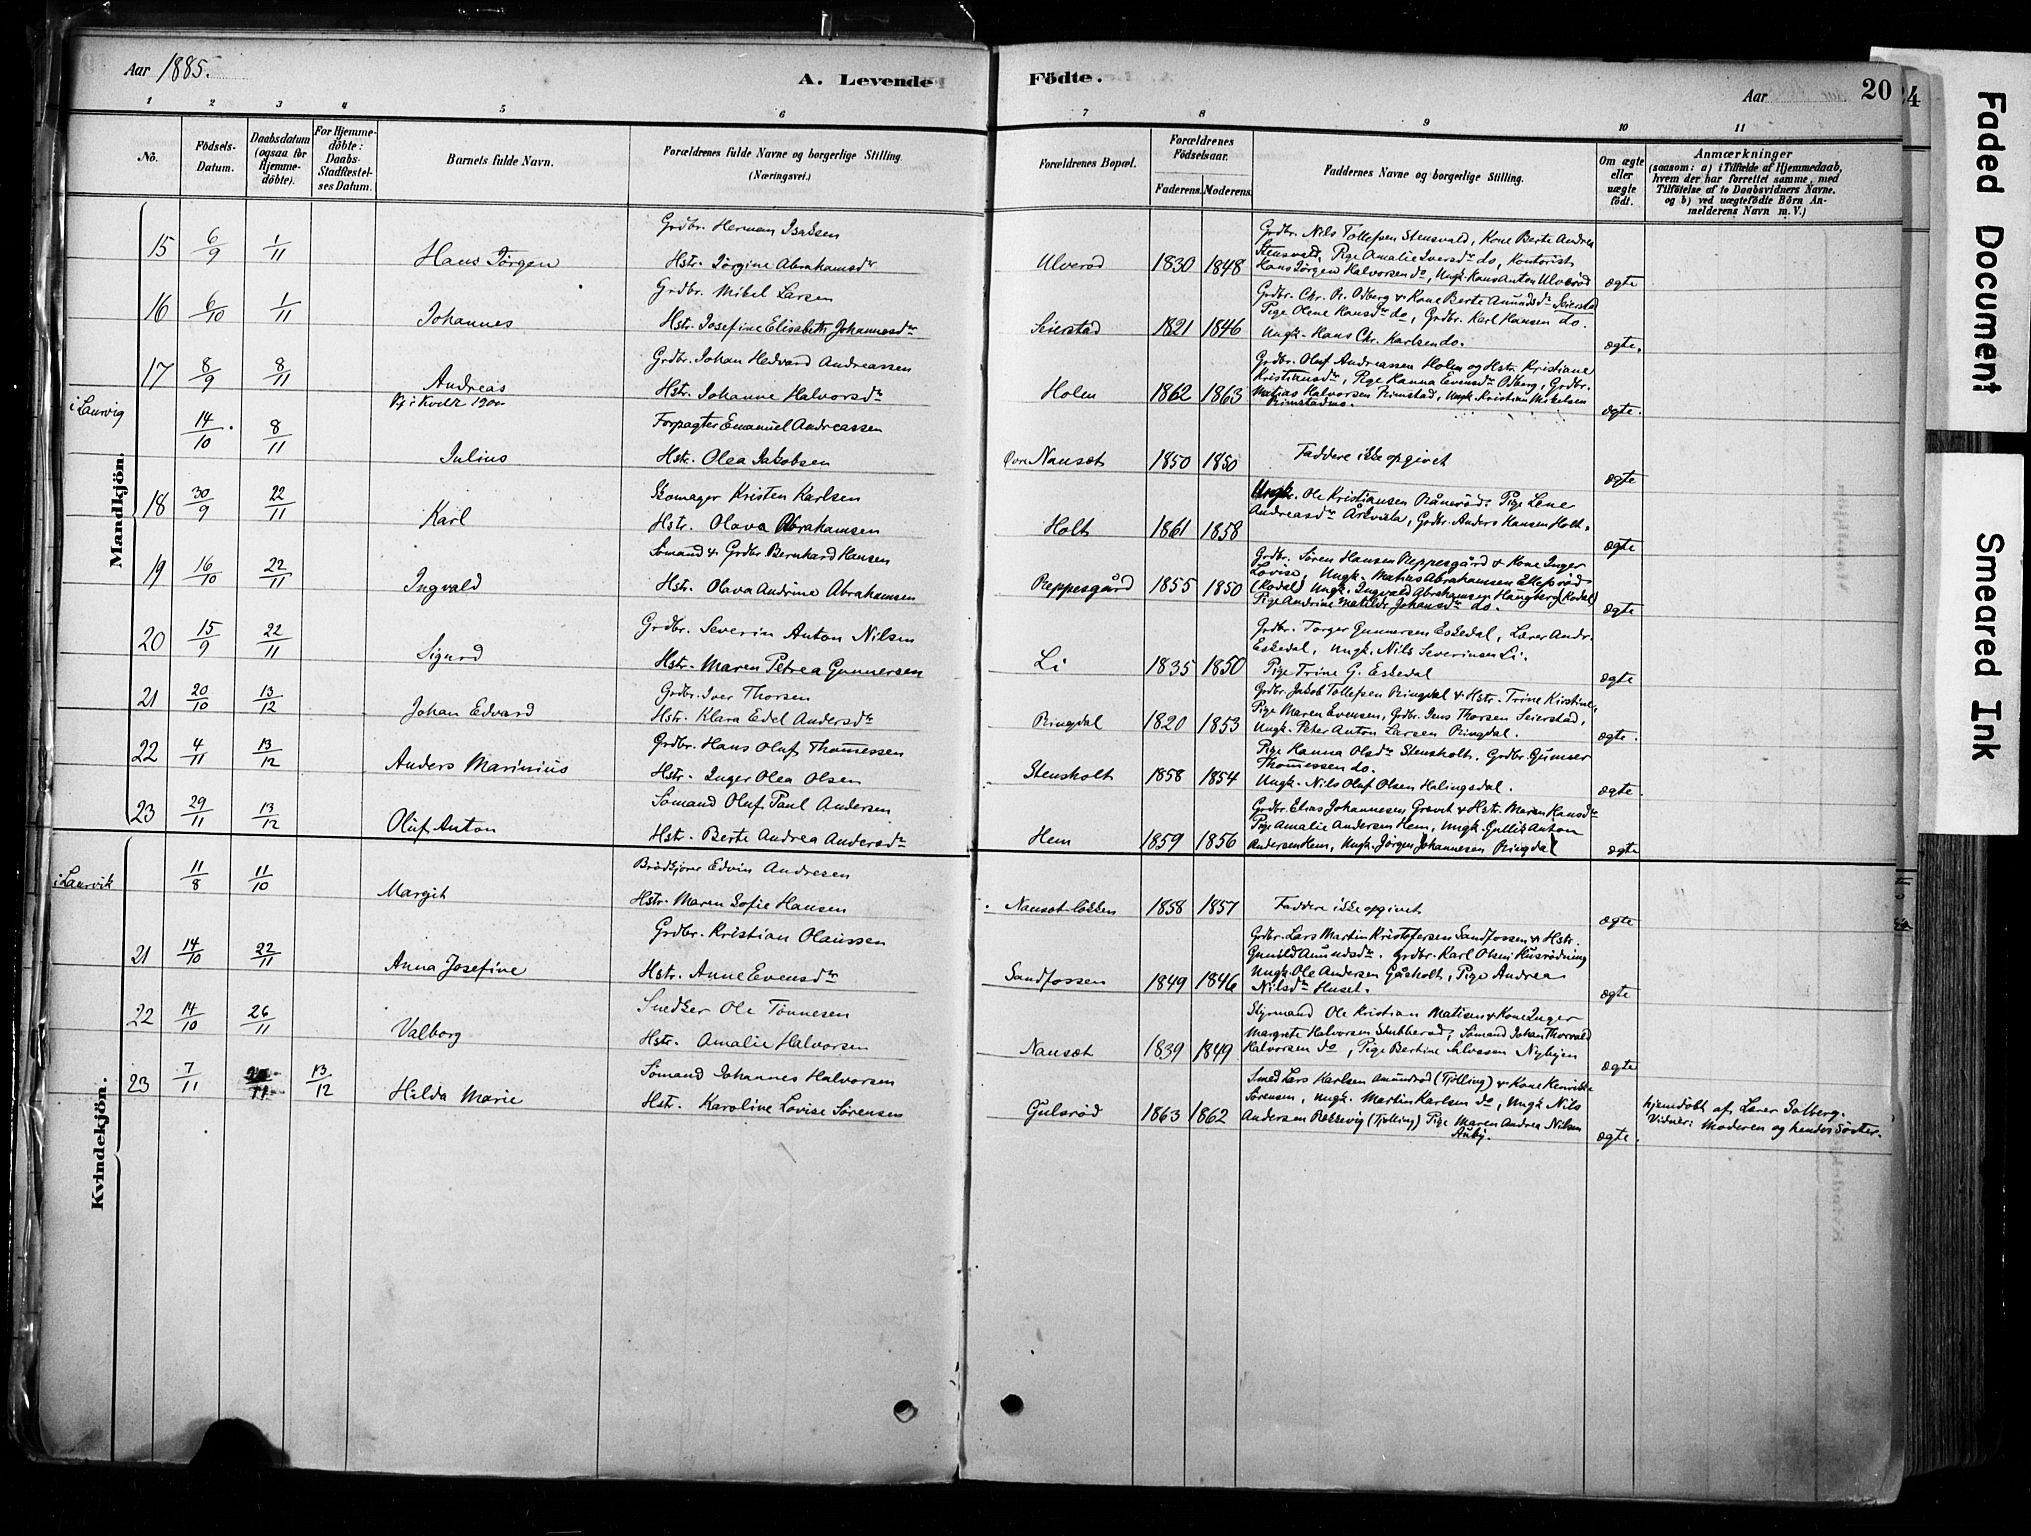 Aar 1885.
A. Levende
Födte.
Aar
20
24
Faded Document
Smeared Ink
1 2 3 4 5 6 7 8 9 10 11
No.
Födsels-Datum.
Daabsdatum (ogsaa for Hjemme-döbte).
For Hjemme-döbte: Daabs-Stadfæstel-ses Datum.
Barnets fulde Navn.
Forældrenes fulde Navne og borgerlige Stilling (Næringsvei.)
Forældrenes Bopæl.
Forældrenes Födselsaar.
Faderens. Moderens.
Faddernes Navne og borgerlige Stilling.
Om ægte eller uægte födt.
Anmærkninger
(saasom: a) i Tilfælde af Hjemmedaab, hvem der har forrettet samme, med Tilföielse af to Daabsvidners Navne. og b) ved uægtefödte Börn An-melderens Navn m. V.)
Mandkjön.
15 6/9 1/11 Hans Jørgen
Grdbr. Herman Isaksen
Hstr. Jørgine Abrahamsdr
Ulverød 1830 1848
Grdbr. Nils Tollefsen Stensvald, Kone Berte Andrea
Stensvald, Pige Amalie Iversdr do, Kontorist
Hans Jørgen Halvorsen do, Ungk. Hans Anton Ulverød
ægte
16 6/10 1/11 Johannes
Grdbr. Mikel Larsen
Hstr. Josefine Elisabeth Johannesdr
Seierstad 1821 1846
Grdbr. Chr. R. Odberg & Kone Berte Amundsdr Seierstad
Pige Olene Hansdr do, Grdbr. Karl Hansen do.
Ungk. Hans Chr. Karlsen do.
ægte.
17 8/9 8/11 Andreas
Grdbr. Johan Hedvard Andreassen
Hstr. Johanne Halvorsdr
Holm 1862 1863
Grdbr. Oluf Andreassen Holm og Hstr. Kristiane
Kristiansdr, Pige Hanna Evensdr Odberg, Grdbr.
Matias Halvorsen Rimstad, Ungk. Kristian Mikelsen
Rimstad
ægte.
i Laurvig
14/10 8/11 Julius
Forpagter Emanuel Andreassen
Hstr. Olea Jakobsen
Øvre Nansæt 1850 1850
Faddere ikke opgivet
ægte
18 30/9 22/11 Karl
Skomager Kristen Karlsen
Hstr. Olava Abrahamsen
Holt 1861 1858
Ole Kristiansen Rånerød. Pige Lene
Andreasdr, Grdbr. Anders Hansen Holt.
ægte
19 16/10 22/11 Ingvald
Sømand & Grdbr. Bernhard Hansen
Hstr. Olava Andrine Abrahamsen
Reppesgård 1855 1850
Grdbr. Søren Hansen Reppesgård & Kone Inger
Lovise, Ungk. Matias Abrahamsen
(Kodal) Ungk. Ingvald Abrahamsen Haugberg (Kodal)
Pige Andrine Matilde Johansdr do.
ægte
20 15/9 22/11 Sigurd
Grdbr. Severin Anton Nilsen
Hstr. Maren Petrea Gunnersen
Li 1835 1850
Grdbr. Torger Gunnersen Eskedal, Lærer Andr.
Eskedal, Ungk. Nils Severinsen Li.
Pige Trine G. Eskedal
ægte
21 20/10 13/12 Johan Edvard
Grdbr. Iver Thorsen
Hstr. Klara Edel Andersdr
Ringdal 1820 1853
Grdbr. Jakob Tollefsen Ringdal & Hstr. Trine Kirstine,
Pige Maren Evensen, Grdbr. Jens Thorsen Seierstad,
Ungk. Peter Anton Larsen Ringdal.
ægte.
22 4/11 13/12 Anders Marinius
Grdbr. Hans Oluf Thomessen
Hstr. Inger Olea Olsen
Stensholt 1858 1854
Pige Hanna Olsdr Stensholt, Grdbr. Gunner
Thomessen do.
Ungk. Nils Oluf Olsen Halingsdal.
ægte.
23 29/11 13/12 Oluf Anton
Sømand Oluf Paul Andersen
Hstr. Berte Andrea Andersdr
Hem 1859 1856
Grdbr. Elias Johannesen Gravet & Hstr. Maren Hansdr
Pige Amalie Andersen Hem, Ungk. Gullik Anton
Andersen Hem, Ungk. Jørgen Johannesen Ringdal
ægte
Kvindekjön.
i Laurvik
11/8 11/10 Margit
Brødkjører Edvin Andresen
Hstr. Maren Sofie Hansen
Nansæt løkken 1858 1857
Faddere ikke opgivet
ægte
21 14/10 22/11 Anna Josefine
Grdbr. Kristian Olaussen
Hstr. Anne Evensdr
Sandfossen 1849 1846
Grdbr. Lars Martin Kristofersen Sandfossen & Hstr.
Gunild Amundsdr. Grdbr. Karl Olsen Husrødning
Ungk. Ole Andersen Gåsholt, Pige Andrea
Nilsdr Huset.
ægte
22 14/10 26/11 Valborg
Snedker Ole Tønnesen
Hstr. Amalie Halvorsen
Nansæt 1839 1849
Styrmand Ole Kristian Matisen & Kone Inger
Margrete Halvorsen Stubberød, Sømand Johan Thorvald
Halvorsen do, Pige Bertine Salvesen Nybyen
ægte
23 7/11 13/12 Hilda Marie
Sømand Johannes Halvorsen
Hstr. Karoline Lovise Sørensen
Gulsrød 1863 1862
Smed Lars Karlsen Amundrød (Tjølling) & Kone Henrikke
Sørensen, Ungk. Martin Karlsen do, Ungk Nils
Andersen Rekkevig (Tjølling) Pige Maren Andrea Nilsen
Auby.
ægte.
hjemdøbt af Lærer Solberg.
Vidner: Moderen og hendes Søster.